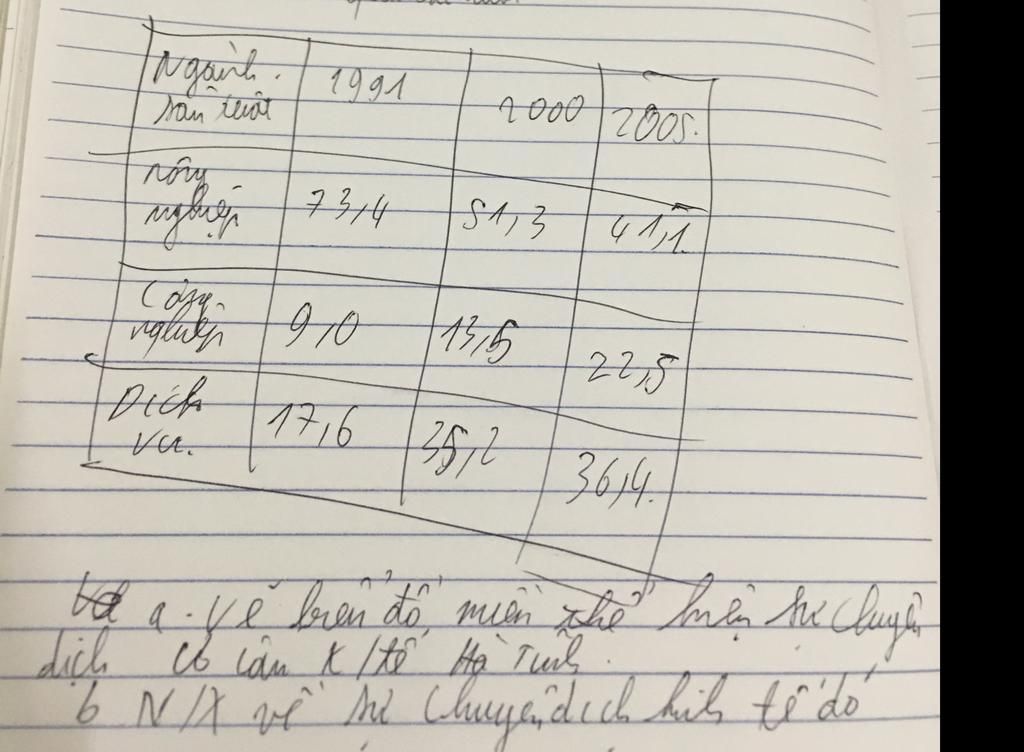 Ngành sản xuất 1991 2000 2005.
nông nghiệp 73,4 51,3 41,1.
Công nghiệp 9,0 13,5 22,5
Dịch vụ. 17,6 35,2 36,4.
a. Vẽ biểu đồ miền thể hiện sự chuyển
dịch cơ cấu K/tế Hà Tĩnh.
b N/X về sự chuyển dịch kinh tế đó